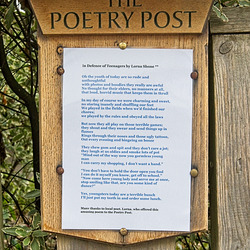 THE
POETRY POST
In Defence of Teenagers by Lorna House
Oh the youth of today are so rude and
unthoughtful
with phones and hoodies they really are awful
No thought for their elders, no manners at all,
that loud, horrid music that keeps them in thrall
In my day of course we were charming and sweet,
no staying insanely and shuffling our feet
We played in the fields when we'd finished our
chores;
we played by the rules and obeyed all the laws
But now they all play on those terrible games;
they shoot and they swear and send things up in
flames
Rings through their noses and those ugly tattoos,
Out every evening and hinging on booze
They chew gum and spit and they don't care a jot;
they laugh at us oldies and smoke lots of pot
"Mind out of the way now you gormless young
man
I can carry my shopping, I don't want a hand."
"You don't have to hold the door open you fool
I can do it myself you know, get off to school."
"Now some have young lady and move out of my way
Stop smiling like that, are you some kind of
dunce?"
Yes, youngsters today are a terrible bunch
I'll just put my teeth in and order some lunch.
Many thanks to local poet, Lorna, who offered this
amusing poem to the Poetry Post.